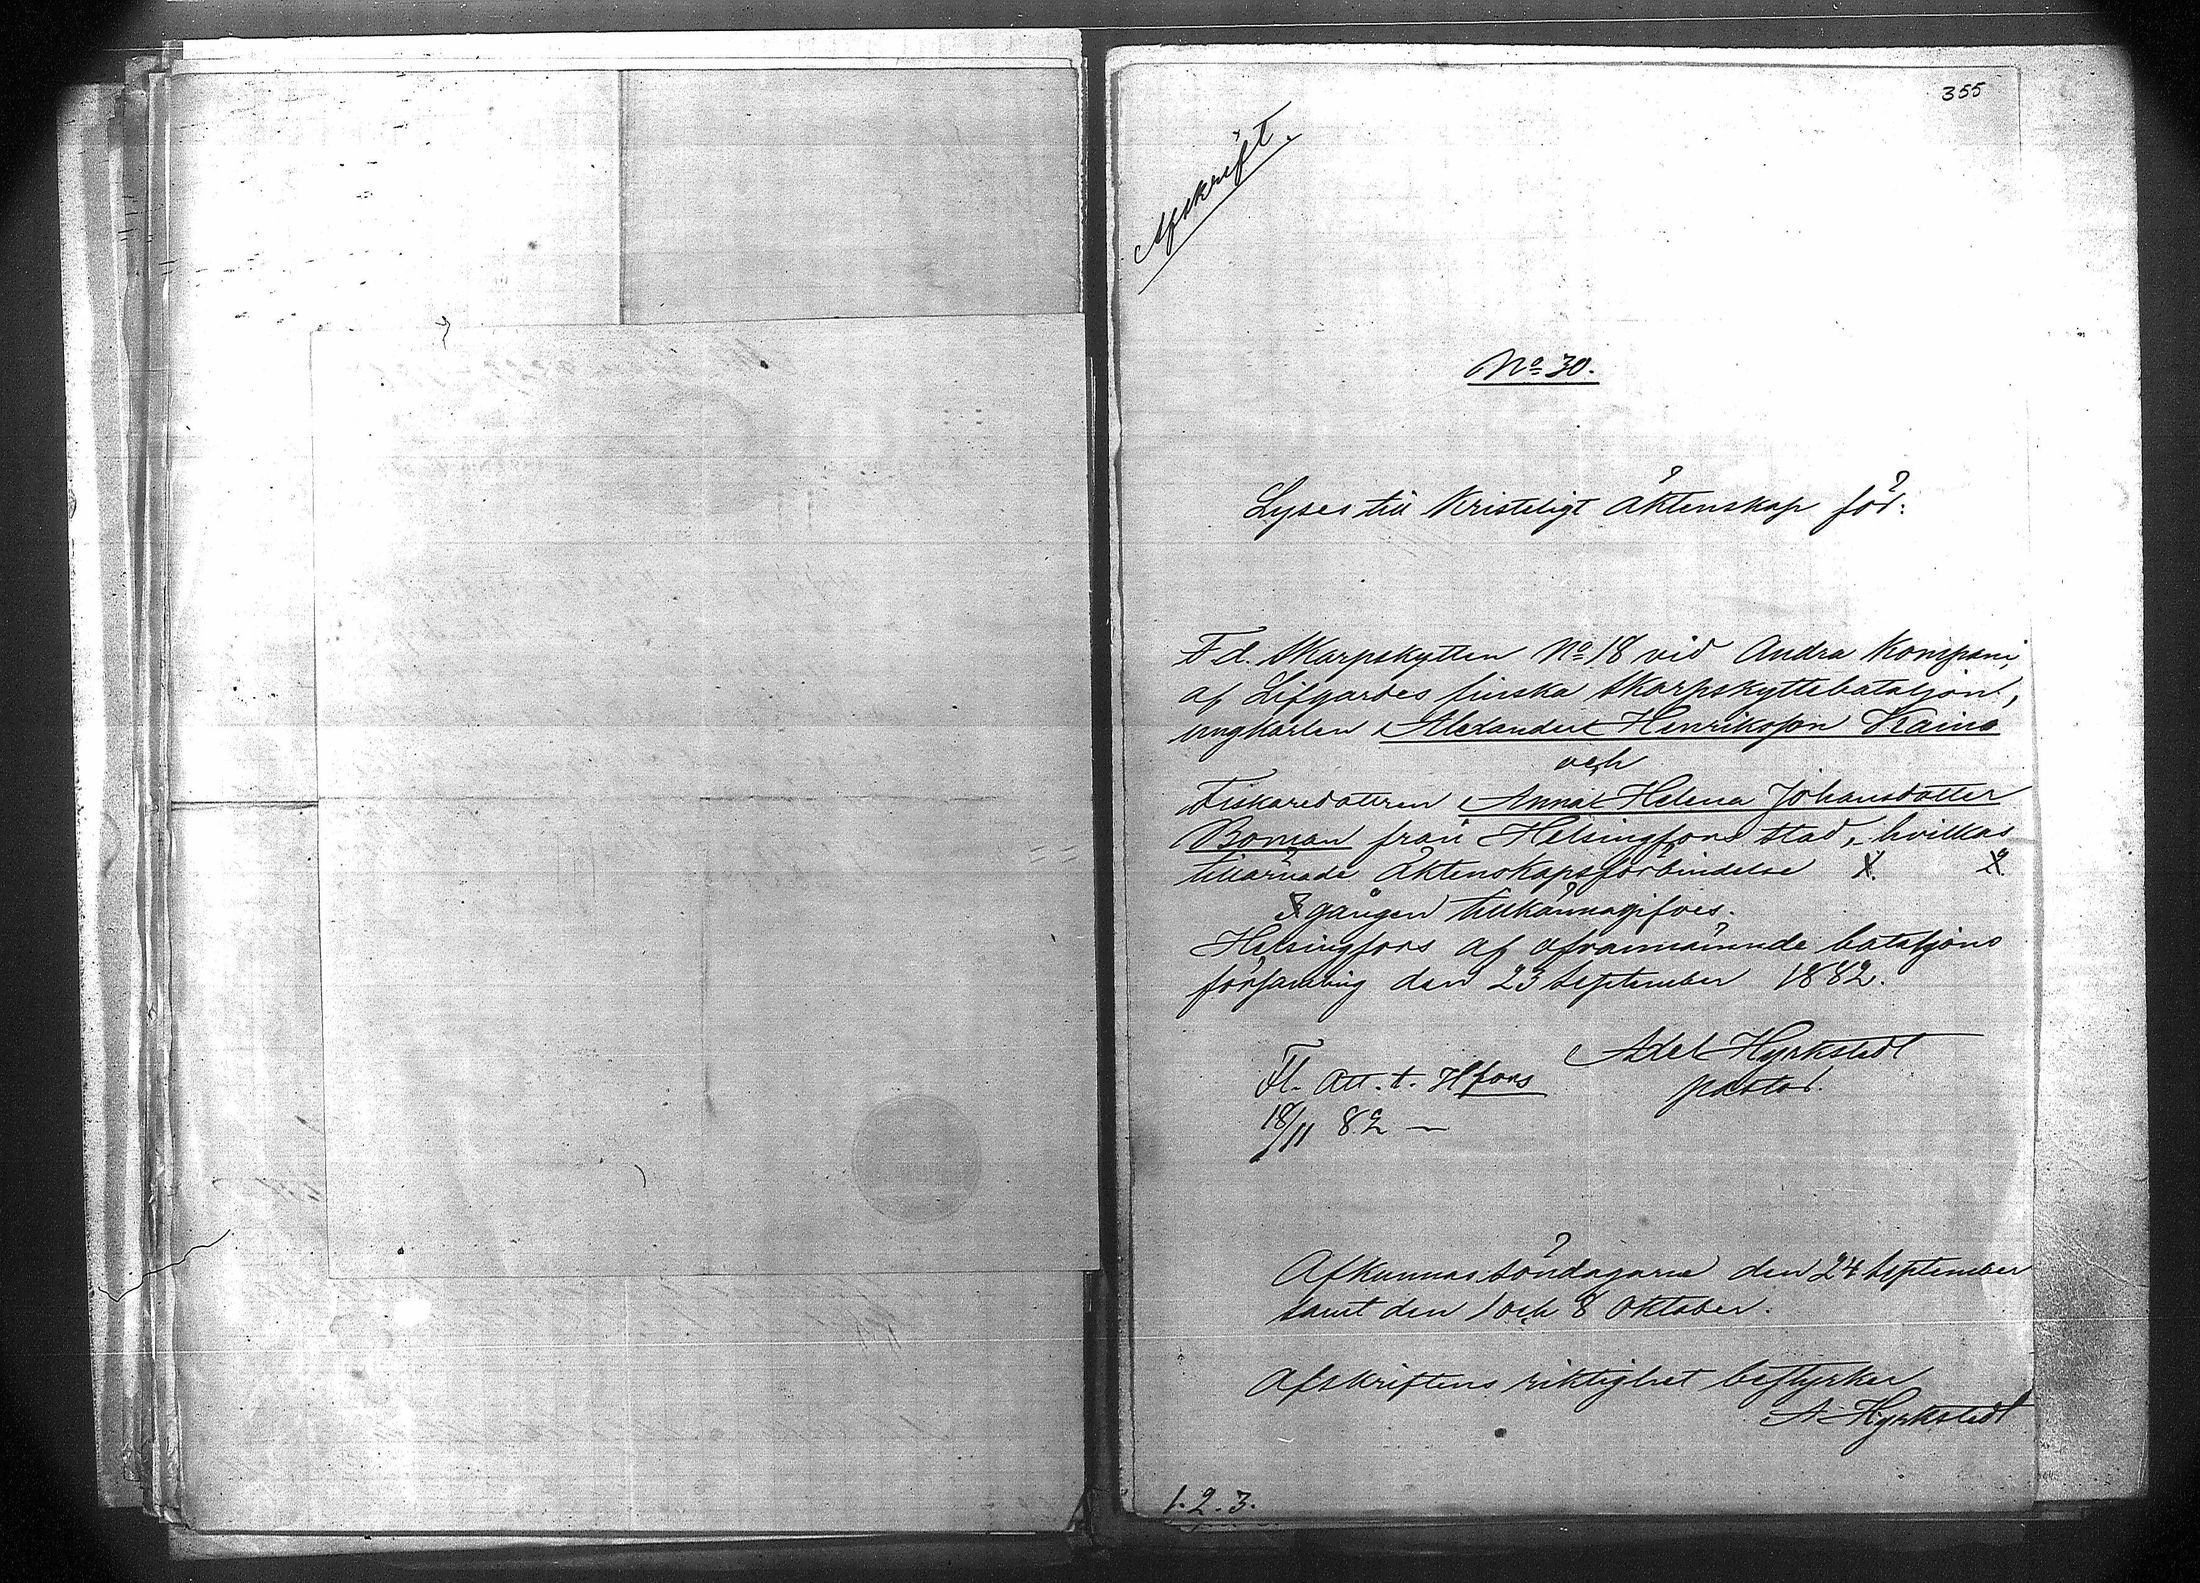 355
Afskrift.
No 30.
Lyses till Kristeligt äktenskap för:
F d. Skarpskytten No 18 vid Andra Kompani
af Lifgardes finska Skarpskyttebataljon,
ungkarlen Alexander Henriksson Kaino
och
Fiskaredottren Anna Helena Johansdotter
Boman från Helsingfors stad, hvilkas
tillärnade äktenskapsförbindelse
gången tillkännagifves.
Helsingfors af ofvannämnde bataljons
församling den 23 September 1882.
Adel Hyrkstedt
pastor.
Fl. att. t. Hfors
18/11 82 —
Afkunnas söndagarne den 24 September
samt den 1 och 8 Oktober.
Afskriftens riktighet bestyrker
A Hyrkstedt
1. 2. 3.